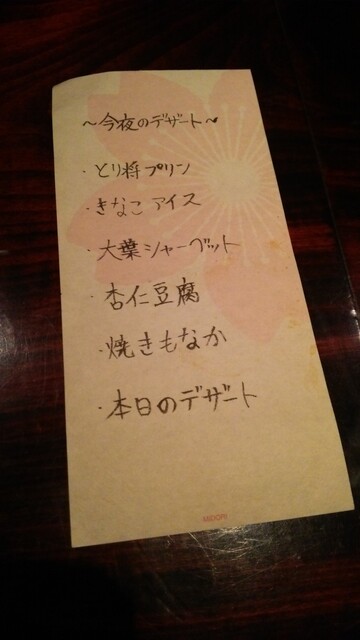 ～今夜のデザート～
・とり将プリン
・きなこアイス
・大葉シャーベット
・杏仁豆腐
・焼きもなか
・本日のデザート
MIDORI